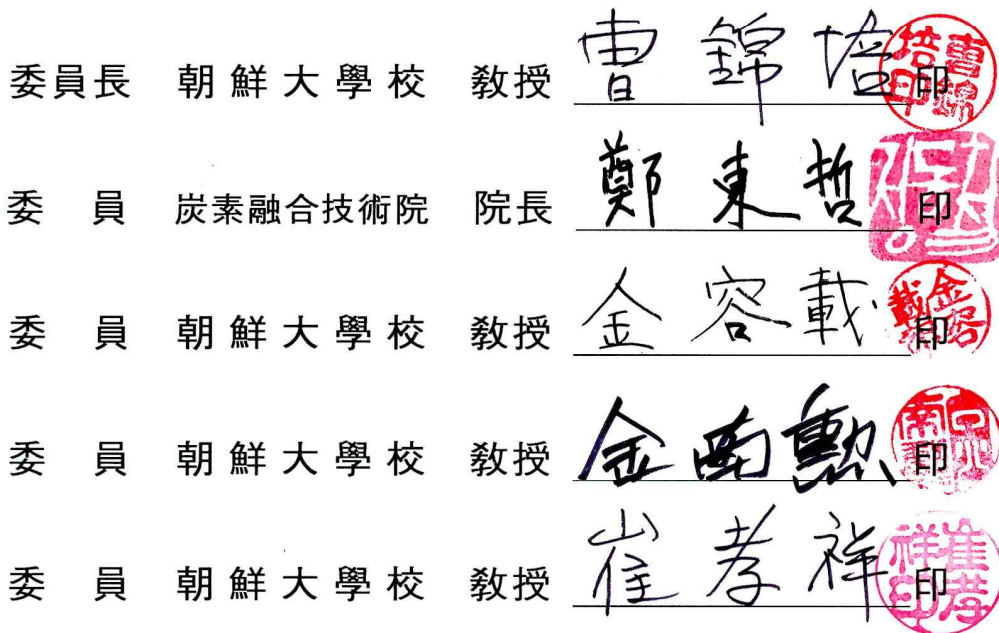 委員長 朝鮮大學校 教授 曺錦培 印
委員 炭素融合技術院 院長 鄭東哲 印
委員 朝鮮大學校 教授 金容載 印
委員 朝鮮大學校 教授 金南勲 印
委員 朝鮮大學校 教授 崔孝祥 印